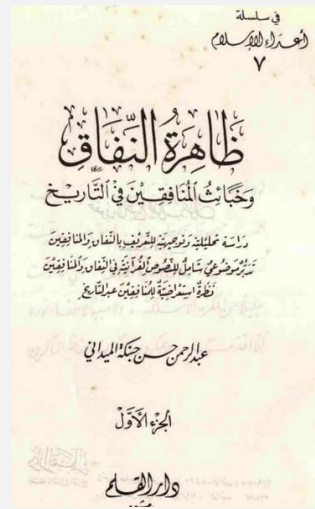 في سلسلة
أعداء الإسلام
٧
ظَاهِرَةُ النِّفَاقِ
وَخَبَائِثُ الْمُنَافِقِيْنَ فِي التَّارِيْخِ
دراسة تحليلية وتوجيهية للتعريف بالنفاق والمنافقين
تدبر موضوعي شامل للنصوص القرآنية في النفاق والمنافقين
نظرة استعراضية للمنافقين عبر التاريخ
عبد الرحمن حسن حبنكة الميداني
الجزء الأول
دار القلم